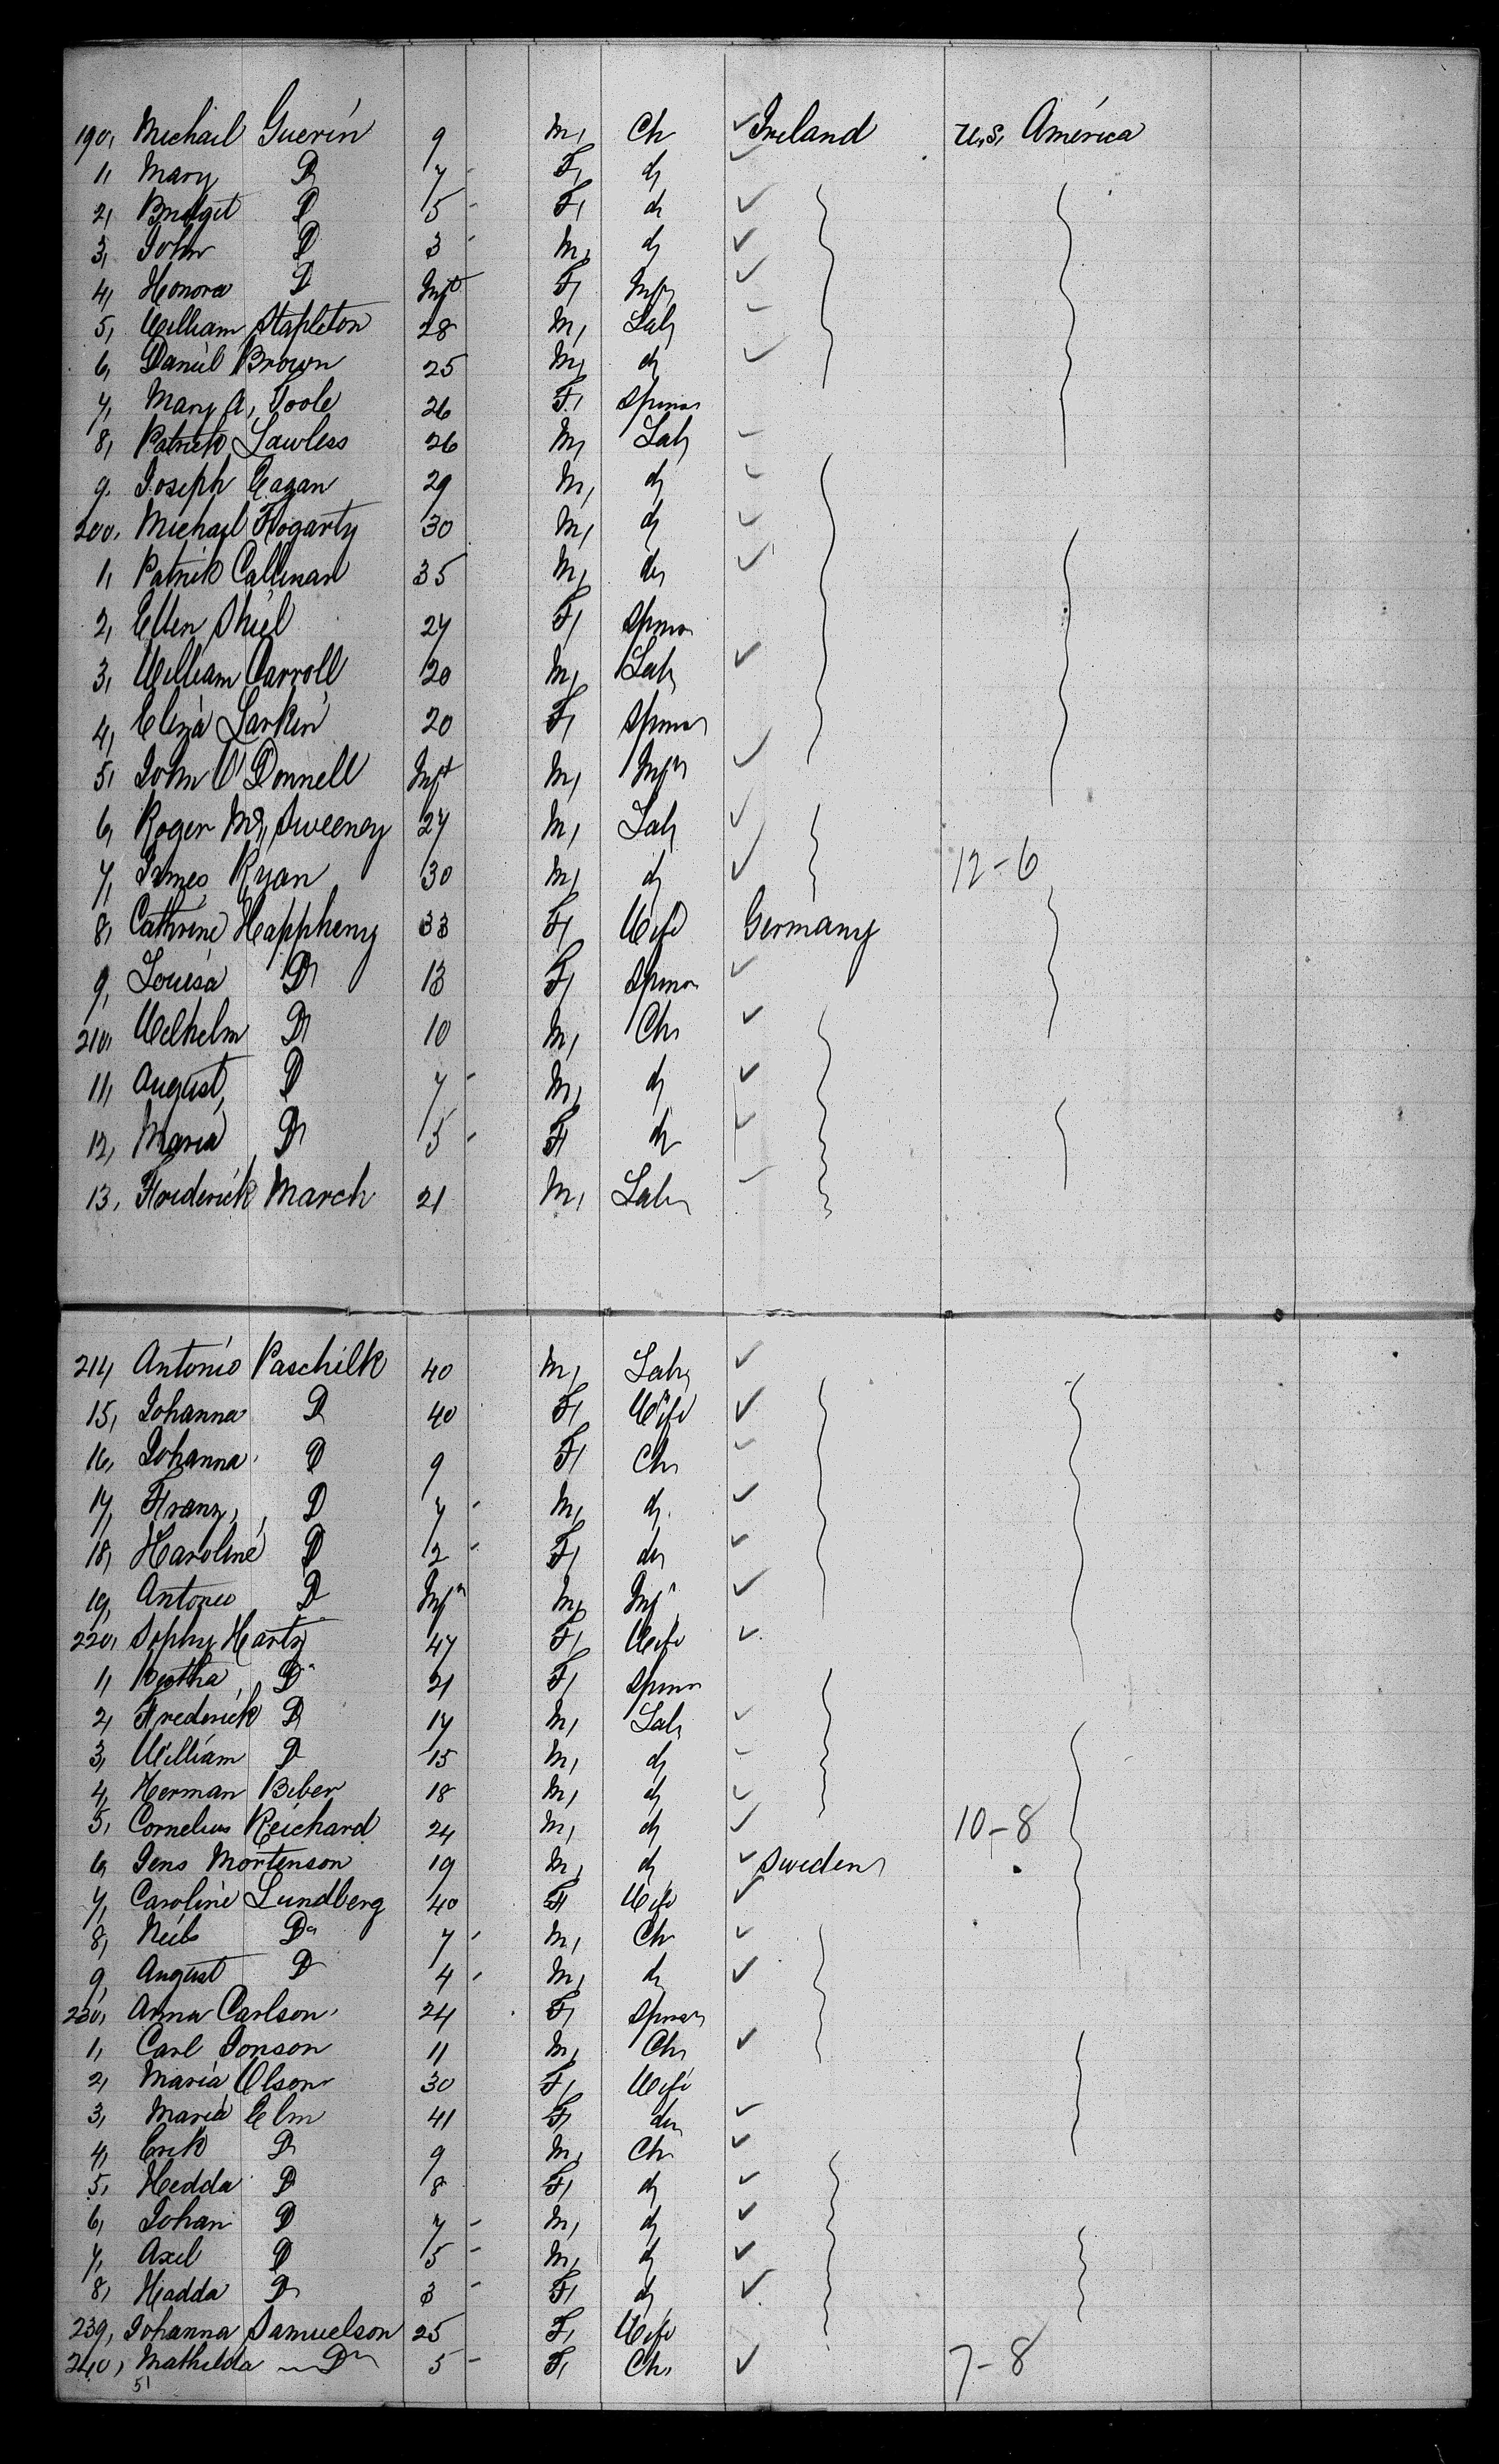 190, Michael Guerin 9 M, Ch Ireland U,S, America
1, Mary D 7 F, d
2, Bridget D 5 F, d
3, John D 3 M, d
4, Honora D Inft F, Inft
5, William Stapleton 28 M, Lab
6, Daniel Brown 25 M, d
7, Mary A, Toole 26 F, Spinsr
8, Patrick Lawless 26 M, Lab
9, Joseph Eagan 29 M, d
200, Michael Fogarty 30 M, d
1, Patrick Callinan 35 M, do
2, Ellen Shiel 27 F, Spinsr
3, William Carroll 20 M, Lab
4, Eliza Larkin 20 F, Spinsr
5, John O'Donnell Inft M, Inft
6, Roger Mc, Sweeney 27 M, Lab
7, James Ryan 30 M, d 12-6
8, Cathrine Happheny 33 F, Wife Germany
9, Louisa D 13 F, Spinsr
210, Welhelm D 10 M, Ch
11, August, D 7 M, d
12, Maria D 5 F d
13, Frederick March 21 M, Lab
214, Antonio Paschilk 40 M, Lab
15, Johanna D 40 F, Wife
16, Johanna D 9 F, Ch
17, Franz, D 7 M, d
18, Karoline D 2 F, do
19, Antonio D Inft M, Inft
220, Sophy Hartz 47 F, Wife
1, D 21 F, Spinsr
2, Frederick D 17 M, Lab
3, William D 15 M, d
4, Herman Biber 18 M, d
5, Cornelius Reichard 24 M, d 10-8
6, Jens Mortenson 19 M, d Sweden
7, Caroline Lundberg 40 F, Wife
8, Neils Do 7 M, Ch
9, August D 4 M, d
230, Anna Carlson 24 F, Spinsr
1, Carl Jonson 11 M, Ch
2, Maria Olson 30 F, Wife
3, Maria Elm 41 F, do
4, Erik D 9 M, Ch
5, Hedda D 8 F, d
6, Johan D 7 M, d
7, Axel D 5 M, d
8, Hadda D 3 F, d
239, Johanna Samuelson 25 F, Wife
240, Mathilda Do 5 F, Ch 7-8
51